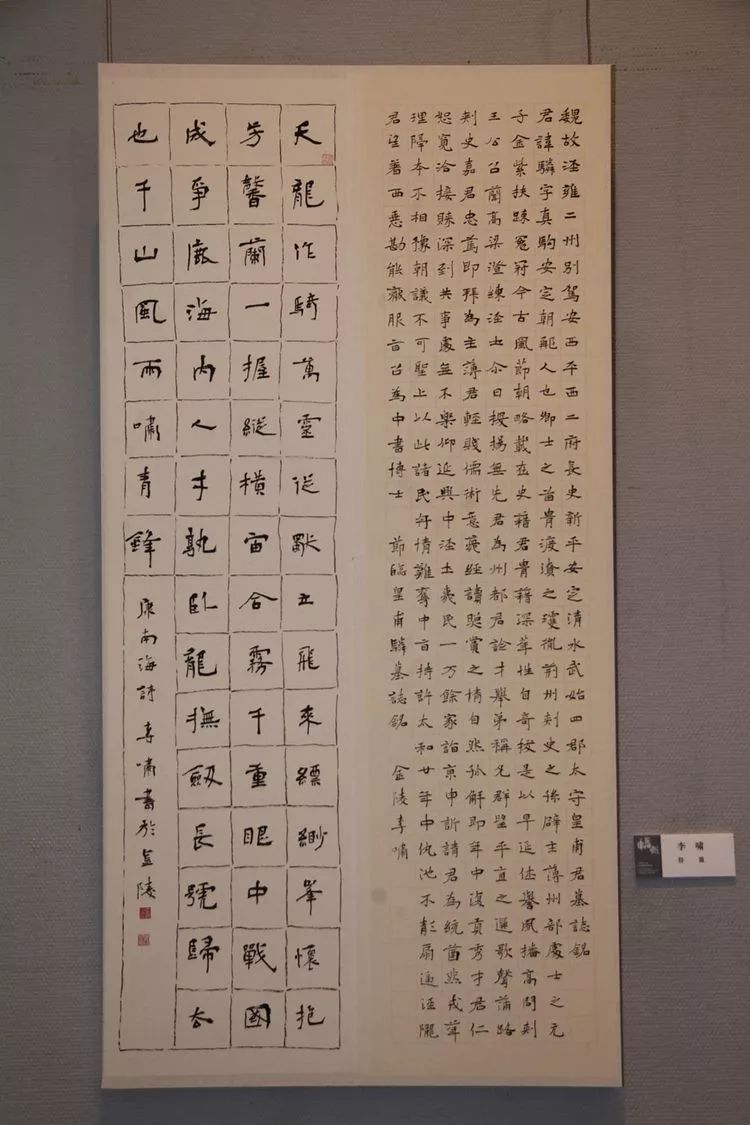 魏故涇雍二州別駕安西平西二府長史新平安定清水武始四郡太守皇甫君墓誌銘
君諱驎字真駒安定朝那人也卿士之苗貴渡瀆之瓊胤荊州刺史之孫辟主薄州部處士之元
子金紫扶踈冕冠今古風節朝略載在史藉君貴籍深華性自奇悛是以早延徃譽夙播高問刺
王公召蘭高梁澄練涇土尒日授揚無先君為州都君詮才舉弟稱允群望平直之選歌聲滿路
刺史嘉君忠篤即拜為主薄君輕賤儒術意薄經讀賾賞之情自然孤解即年中復貢秀才君仁
恕寬洽接賖深到共事處無不樂仰延興中涇土夷民一万餘家詣京申訴請君為統酋然戎華
理隔本不相豫朝議不可聖上以此諸民好情難奪中旨特許太和廿年中仇池不彰扇逼涇隴
君望著西悪勘能厭服旨召為中書博士 節臨皇甫驎墓誌銘 金陵李嘯
天龍作騎萬靈從獨立飛來縹緲峯懷抱
芳馨蘭一握縱橫宙合霧千重眼中戰國
成爭鹿海內人才孰臥龍撫劔長號歸去
也千山風雨嘯青鋒
康南海詩李嘯書於金陵
李嘯